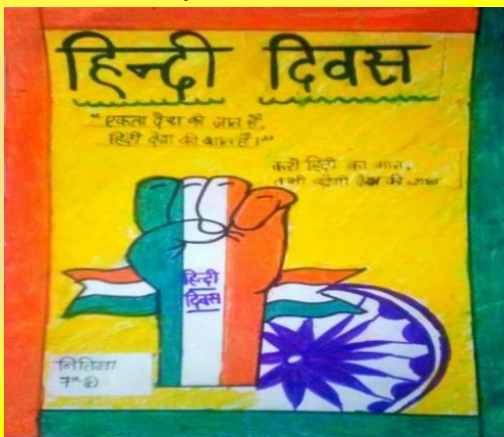 हिन्दी दिवस
"एकता देश की जान है,
हिंदी देश की शान है।"
करो हिंदी का मान,
तभी बढ़ेगी देश की शान
हिन्दी
दिवस
7